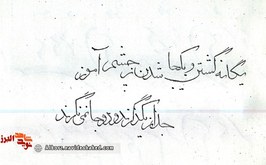 یگانه گشتن و یکجا شدن ز چشم آموز
جدا ز یکدیگرند و دو جا نمی‌نگرند
Alborz.navideshahed.com